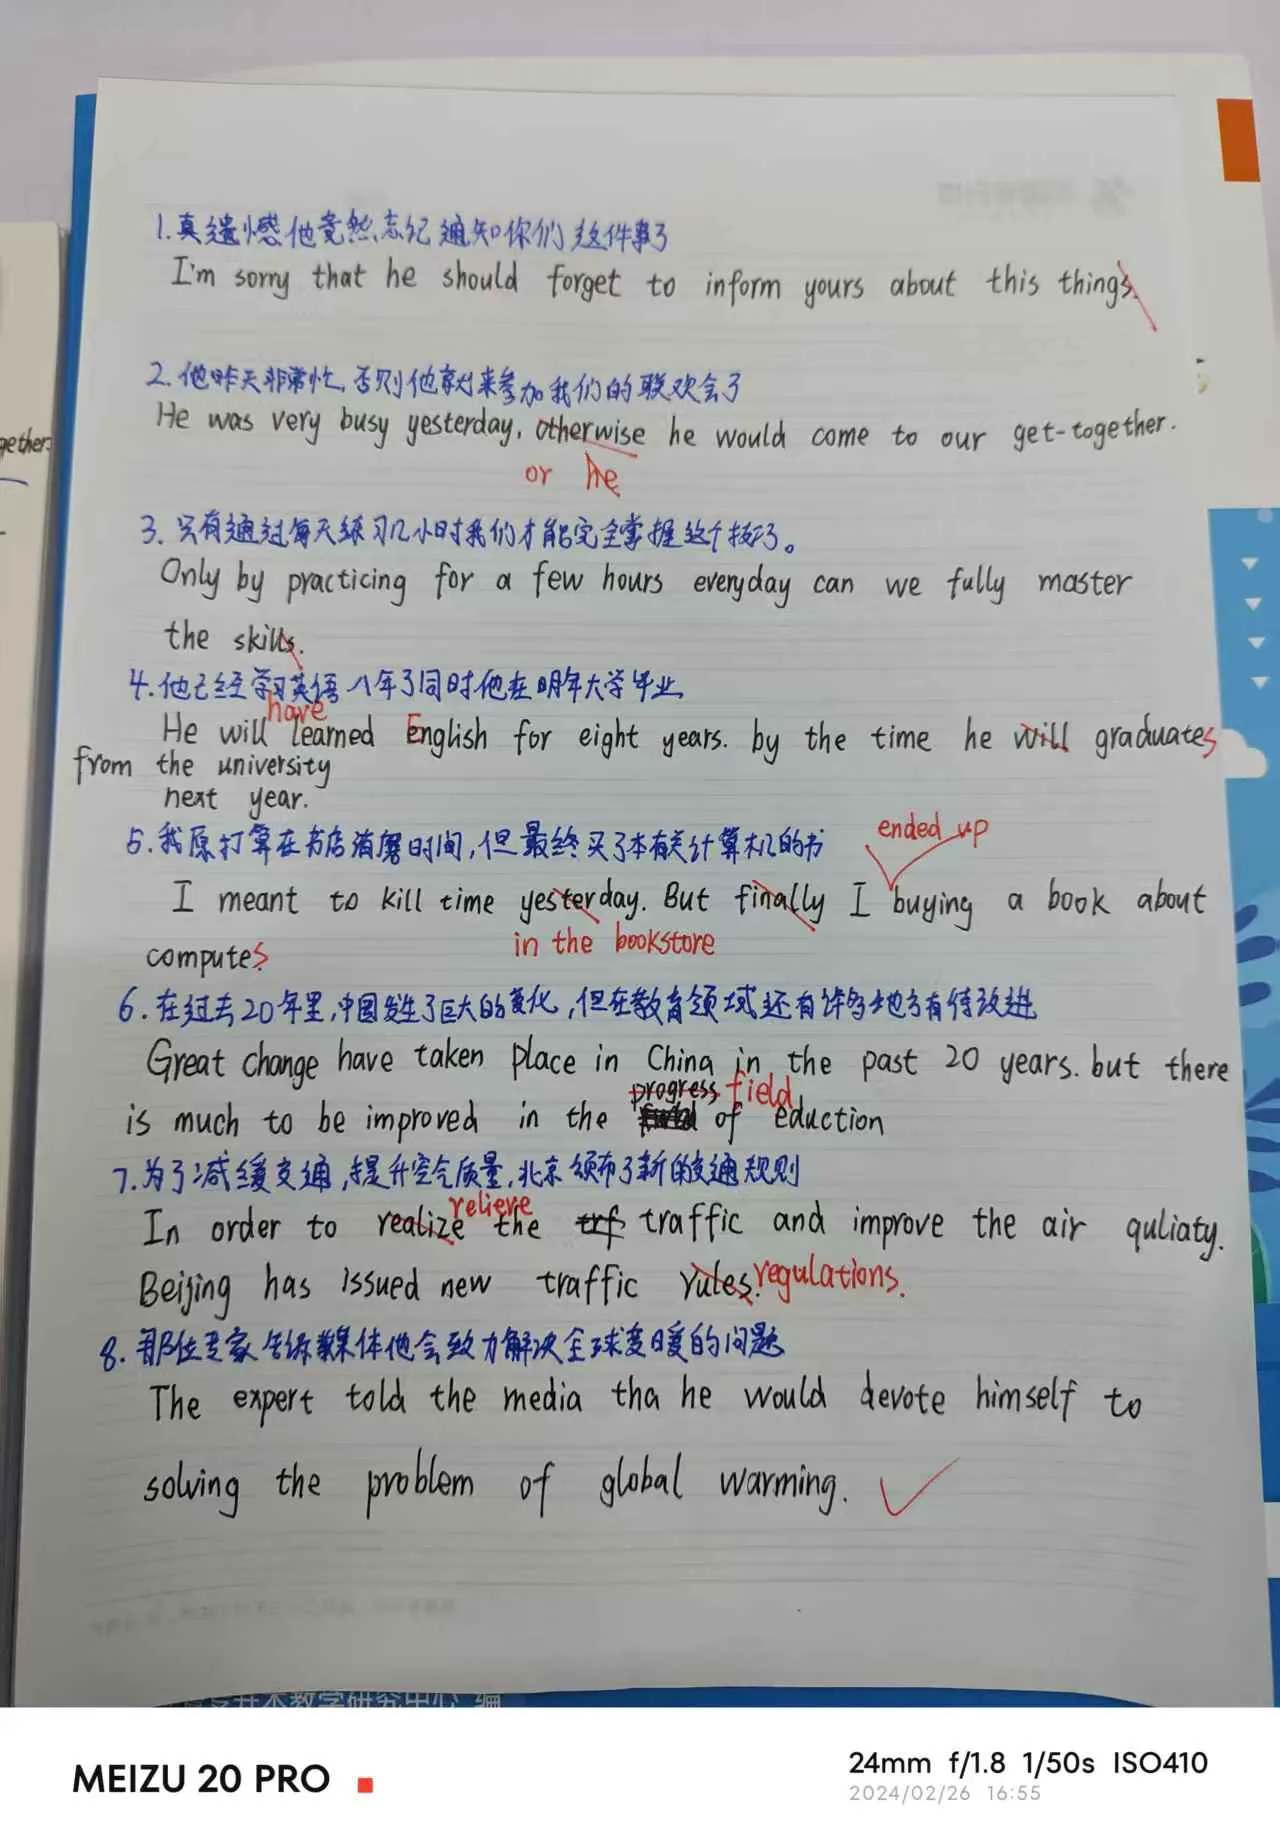 gether.
1.真遗憾他竟然忘记通知你们这件事了
I'm sorry that he should forget to inform yours about this things.
2.他昨天非常忙,否则他就来参加我们的联欢会了
He was very busy yesterday, otherwise he would come to our get-together.
or he
3.只有通过每天练习几小时我们才能完全掌握这个技巧。
Only by practicing for a few hours everyday can we fully master
the skills.
4.他已经学习英语八年了同时他在明年大学毕业
have
He will learned English for eight years. by the time he will graduates
from the university
next year.
5.我原打算在书店消磨时间,但最终买了本有关计算机的书
ended up
I meant to kill time yesterday. But finally I buying a book about
computes.
in the bookstore
6.在过去20年里,中国发生了巨大的变化,但在教育领域还有许多地方有待改进
Great change have taken place in China in the past 20 years. but there
progress field
is much to be improved in the of eduction
7.为了减缓交通,提升空气质量,北京颁布了新的交通规则
relieve
In order to realize the trf traffic and improve the air quliaty.
Beijing has issued new traffic rules. regulations.
8.那位专家告诉媒体他会致力解决全球变暖的问题
The expert told the media tha he would devote himself to
solving the problem of global warming.
MEIZU 20 PRO
24mm f/1.8 1/50s ISO410
2024/02/26 16:55